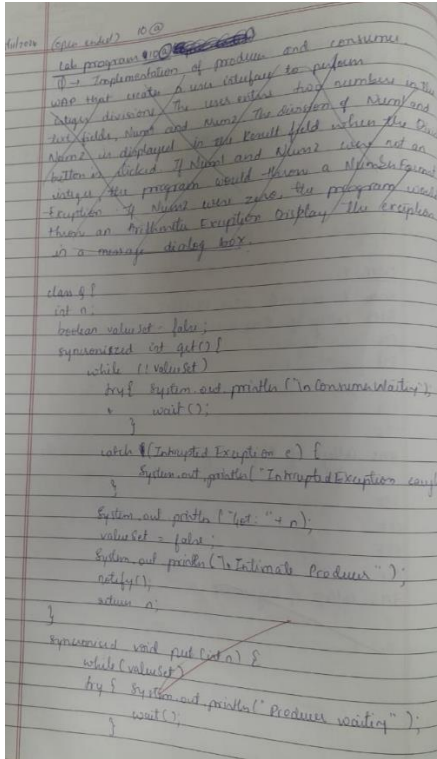 (Open ended) 10 (a)
Lab program 10(a)
Implementation of producer and consumer
WAP that creates a user interface to perform
integer divisions. The user enters two numbers in the
text fields, Num1 and Num2. The division of Num1 and
Num2 is displayed in the Result field when the
button is clicked. If Num1 and Num2 were not an
integer, the program would throw a Number Format
Exception. If Num2 were zero, the program would
throw an Arithmetic Exception Display the exception
in a message dialog box.
class Q {
int n;
boolean valueSet = false;
syncronized int get() {
while (!valueSet)
try { System.out.println ("\n Consumer Waiting");
wait();
}
catch (Intrupted Exception e) {
System.out.println("Intrupted Exception
}
System.out.println ("Got: " + n);
valueSet = false;
System.out.println ("\n Intimate Producer");
notify();
return n;
}
syncronised void put (int n) {
while (valueSet)
try { System.out.println ("Producer waiting");
wait();
}